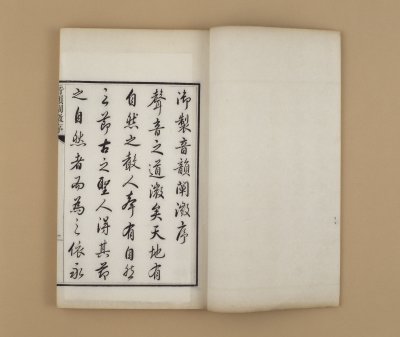 御製音韻闡微序
聲音之道微矣天地有
自然之聲人聲有自然
之節古之聖人得其節
之自然者而為之依永
音韻闡微序